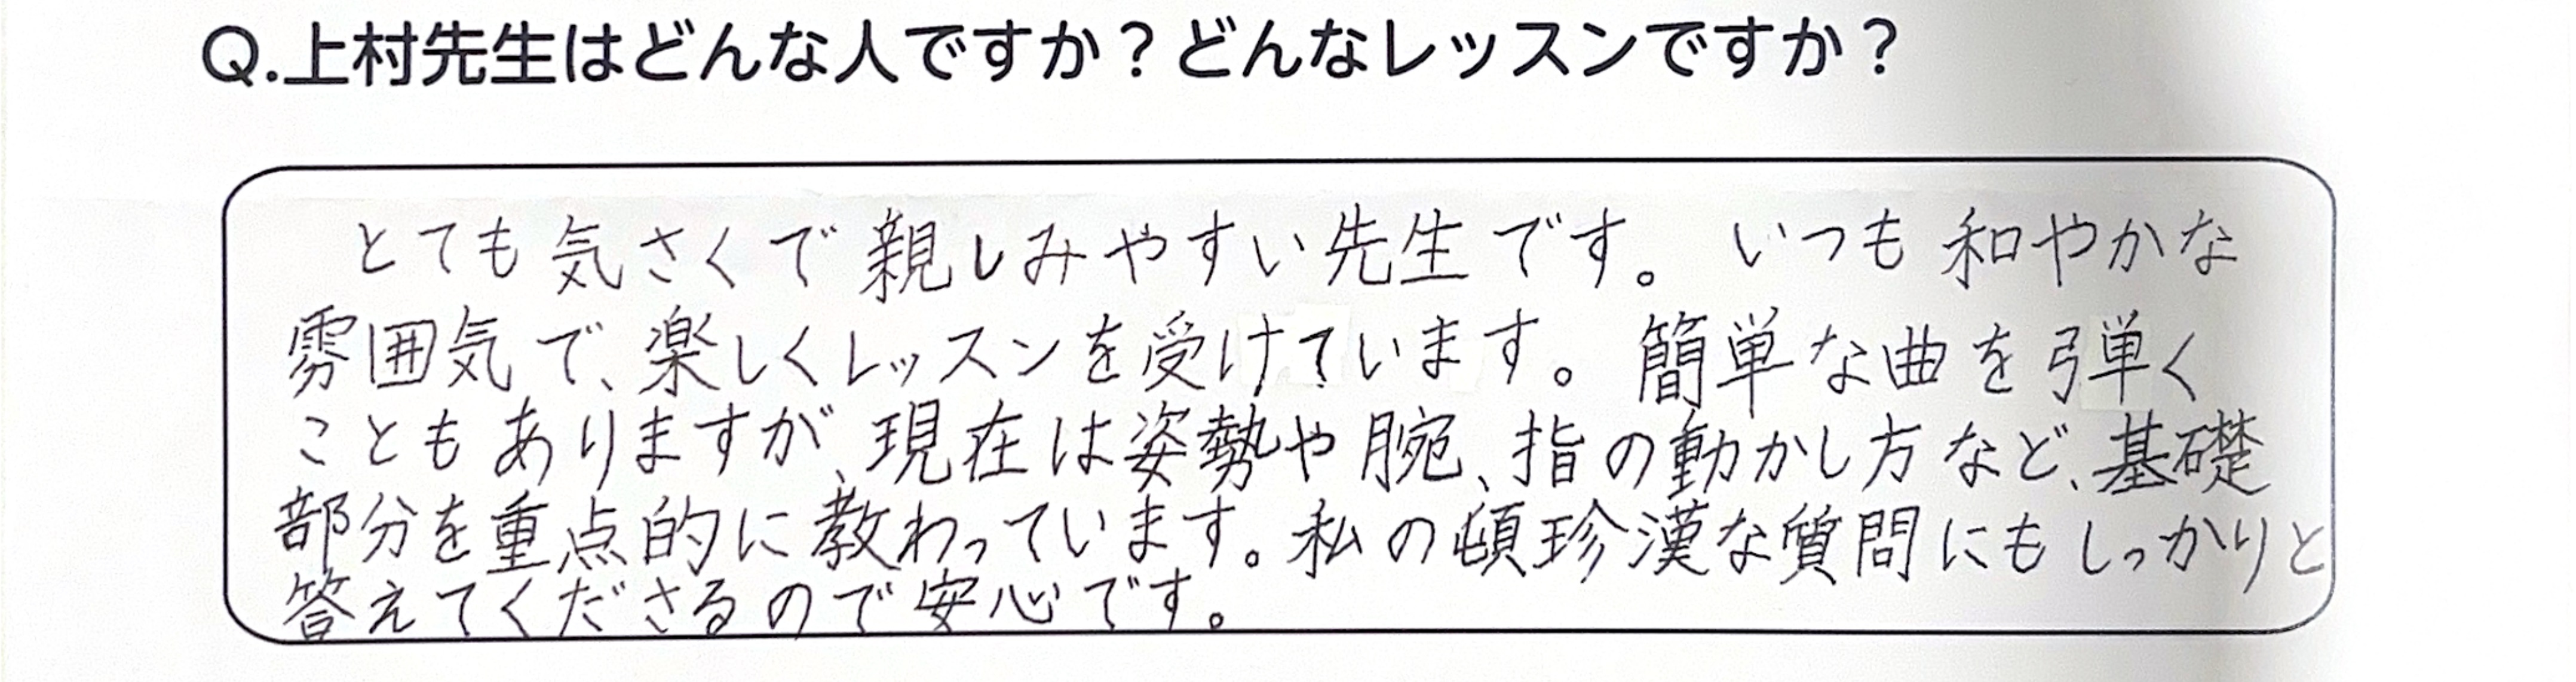 Q.上村先生はどんな人ですか？どんなレッスンですか？
とても気さくで親しみやすい先生です。いつも和やかな
雰囲気で、楽しくレッスンを受けています。簡単な曲を弾く
こともありますが、現在は姿勢や腕、指の動かし方など、基礎
部分を重点的に教わっています。私の頓珍漢な質問にもしっかりと
答えてくださるので安心です。